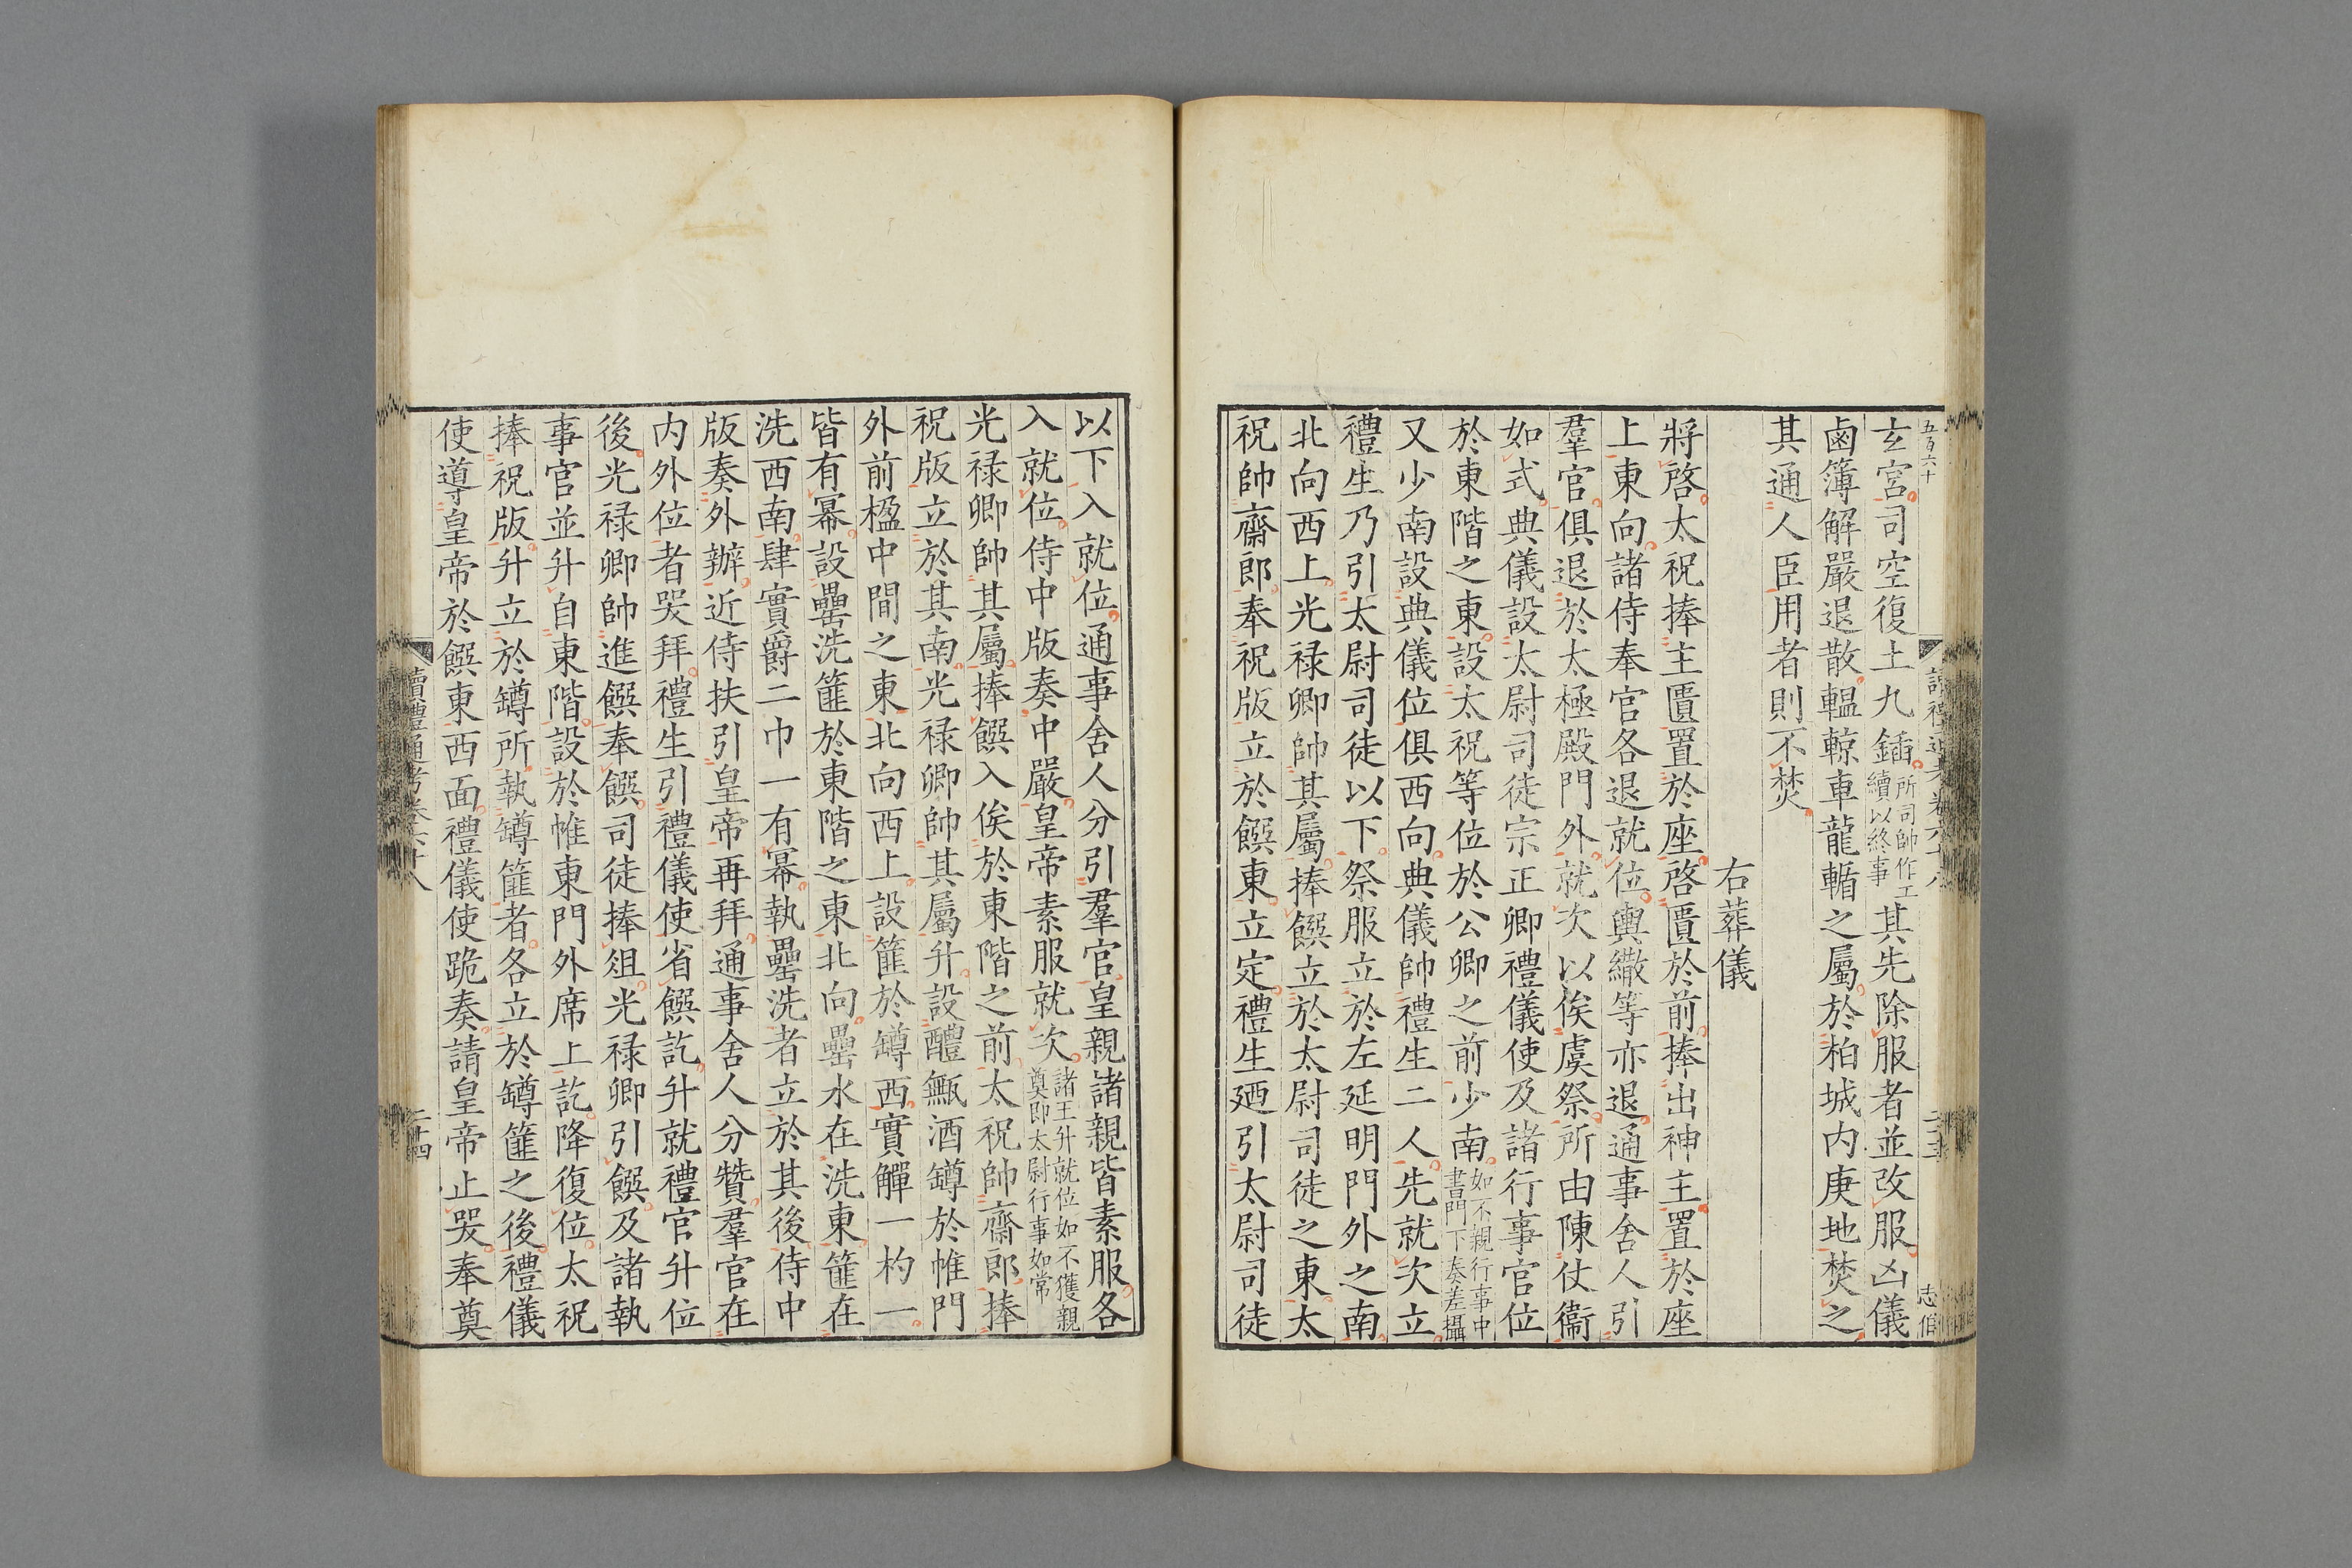 五百六十
玄宮司空復土九鍤所司帥作工續以終事其先除服者並改服凶儀
鹵簿解嚴退散轀輬車龍輴之屬於柏城内庚地焚之
其通人臣用者則不焚
右葬儀
將啓太祝捧主匱置於座啓匱於前捧出神主置於座
上東向諸侍奉官各退就位輿繖等亦退通事舍人引
羣官俱退於太極殿門外就次以俟虞祭所由陳仗衞
如式典儀設太尉司徒宗正卿禮儀使及諸行事官位
於東階之東設太祝等位於公卿之前少南如不親行事中書門下奏差攝
又少南設典儀位俱西向典儀帥禮生二人先就次立
禮生乃引太尉司徒以下祭服立於左延明門外之南
北向西上光禄卿帥其屬捧饌立於太尉司徒之東太
祝帥齋郎奉祝版立於饌東立定禮生廼引太尉司徒
以下入就位通事舍人分引羣官皇親諸親皆素服各
入就位侍中版奏中嚴皇帝素服就次諸王升就位如不獲親奠即太尉行事如常
光禄卿帥其屬捧饌入俟於東階之前太祝帥齋郎捧
祝版立於其南光禄卿帥其屬升設醴甒酒罇於帷門
外前楹中間之東北向西上設篚於罇西實觶一杓一
皆有冪設罍洗篚於東階之東北向罍水在洗東篚在
洗西南肆實爵二巾一有冪執罍洗者立於其後侍中
版奏外辦近侍扶引皇帝再拜通事舍人分贊羣官在
内外位者哭拜禮生引禮儀使省饌訖升就禮官升位
後光禄卿帥進饌奉饌司徒捧俎光禄卿引饌及諸執
事官並升自東階設於帷東門外席上訖降復位太祝
捧祝版升立於罇所執罇篚者各立於罇篚之後禮儀
使導皇帝於饌東西面禮儀使跪奏請皇帝止哭奉奠
讀禮通考卷六十八
二十四